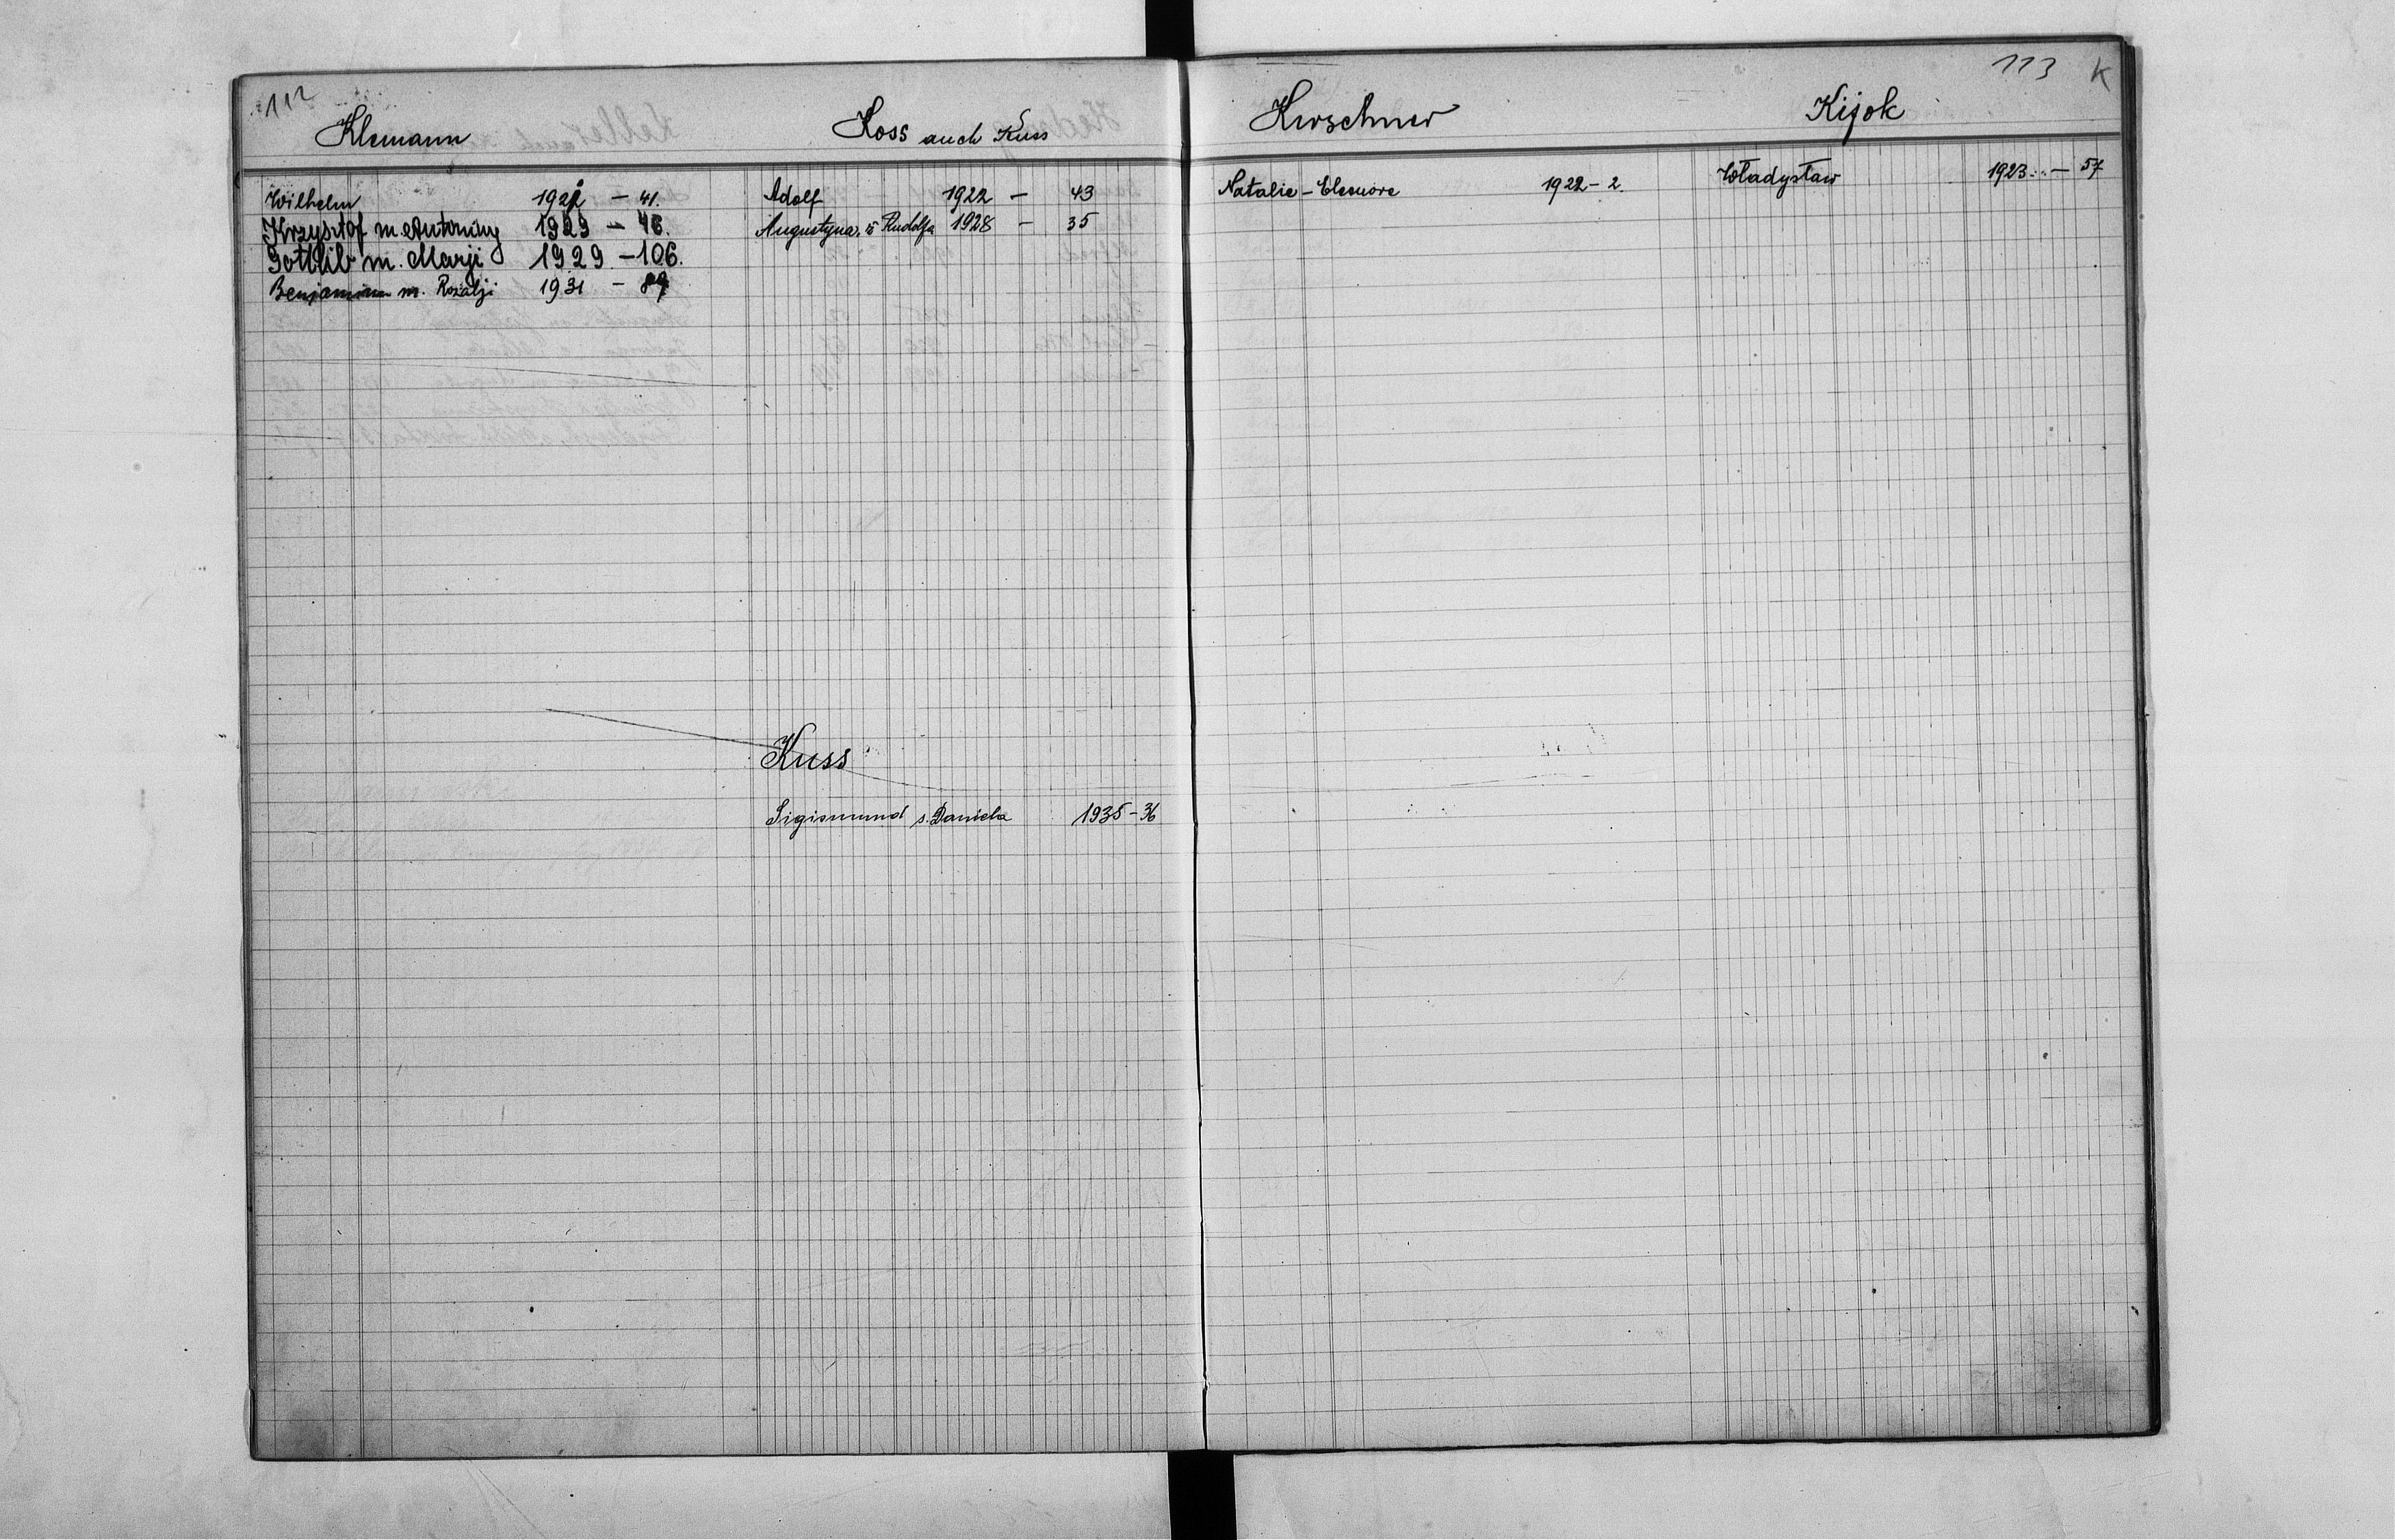 112
Klemann
Wilhelm 1922 — 41.
Krzysztof m. Antoniny 1929 — 46.
Gottlib m. Marji 1929 — 106.
Benjamin m. Rozalji 1931 —
Koss auch Kuss
Adolf 1922 — 43
Augustyna, ż. Rudolfa 1928 — 35
Kuss
Sigismund s. Daniela 1935 - 36
113 K
Kirschner
Natalie - Eleonore 1922 - 2.
Kijok
Władysław 1923 — 57